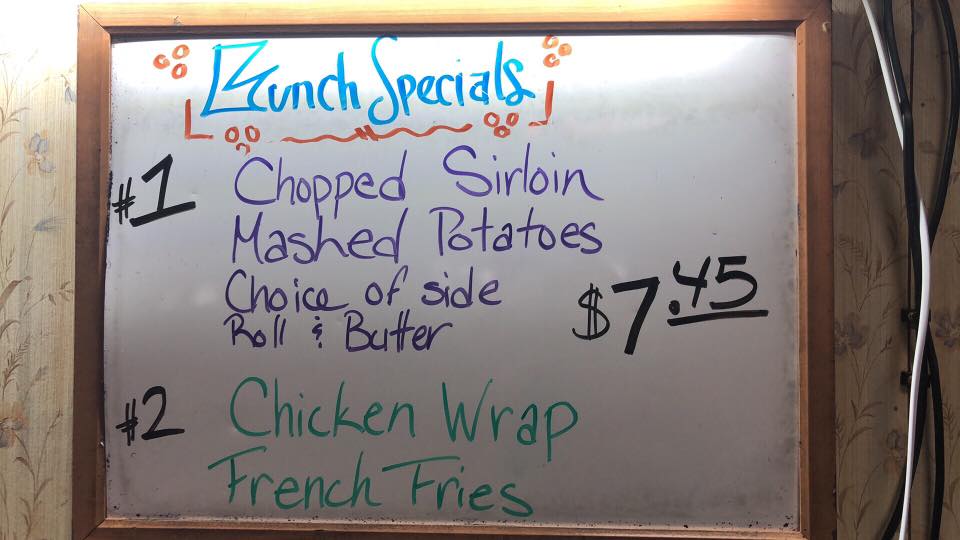 Lunch Specials
#1 Chopped Sirloin
Mashed Potatoes
Choice of side
Roll & Butter
$7.45
#2 Chicken Wrap
French Fries